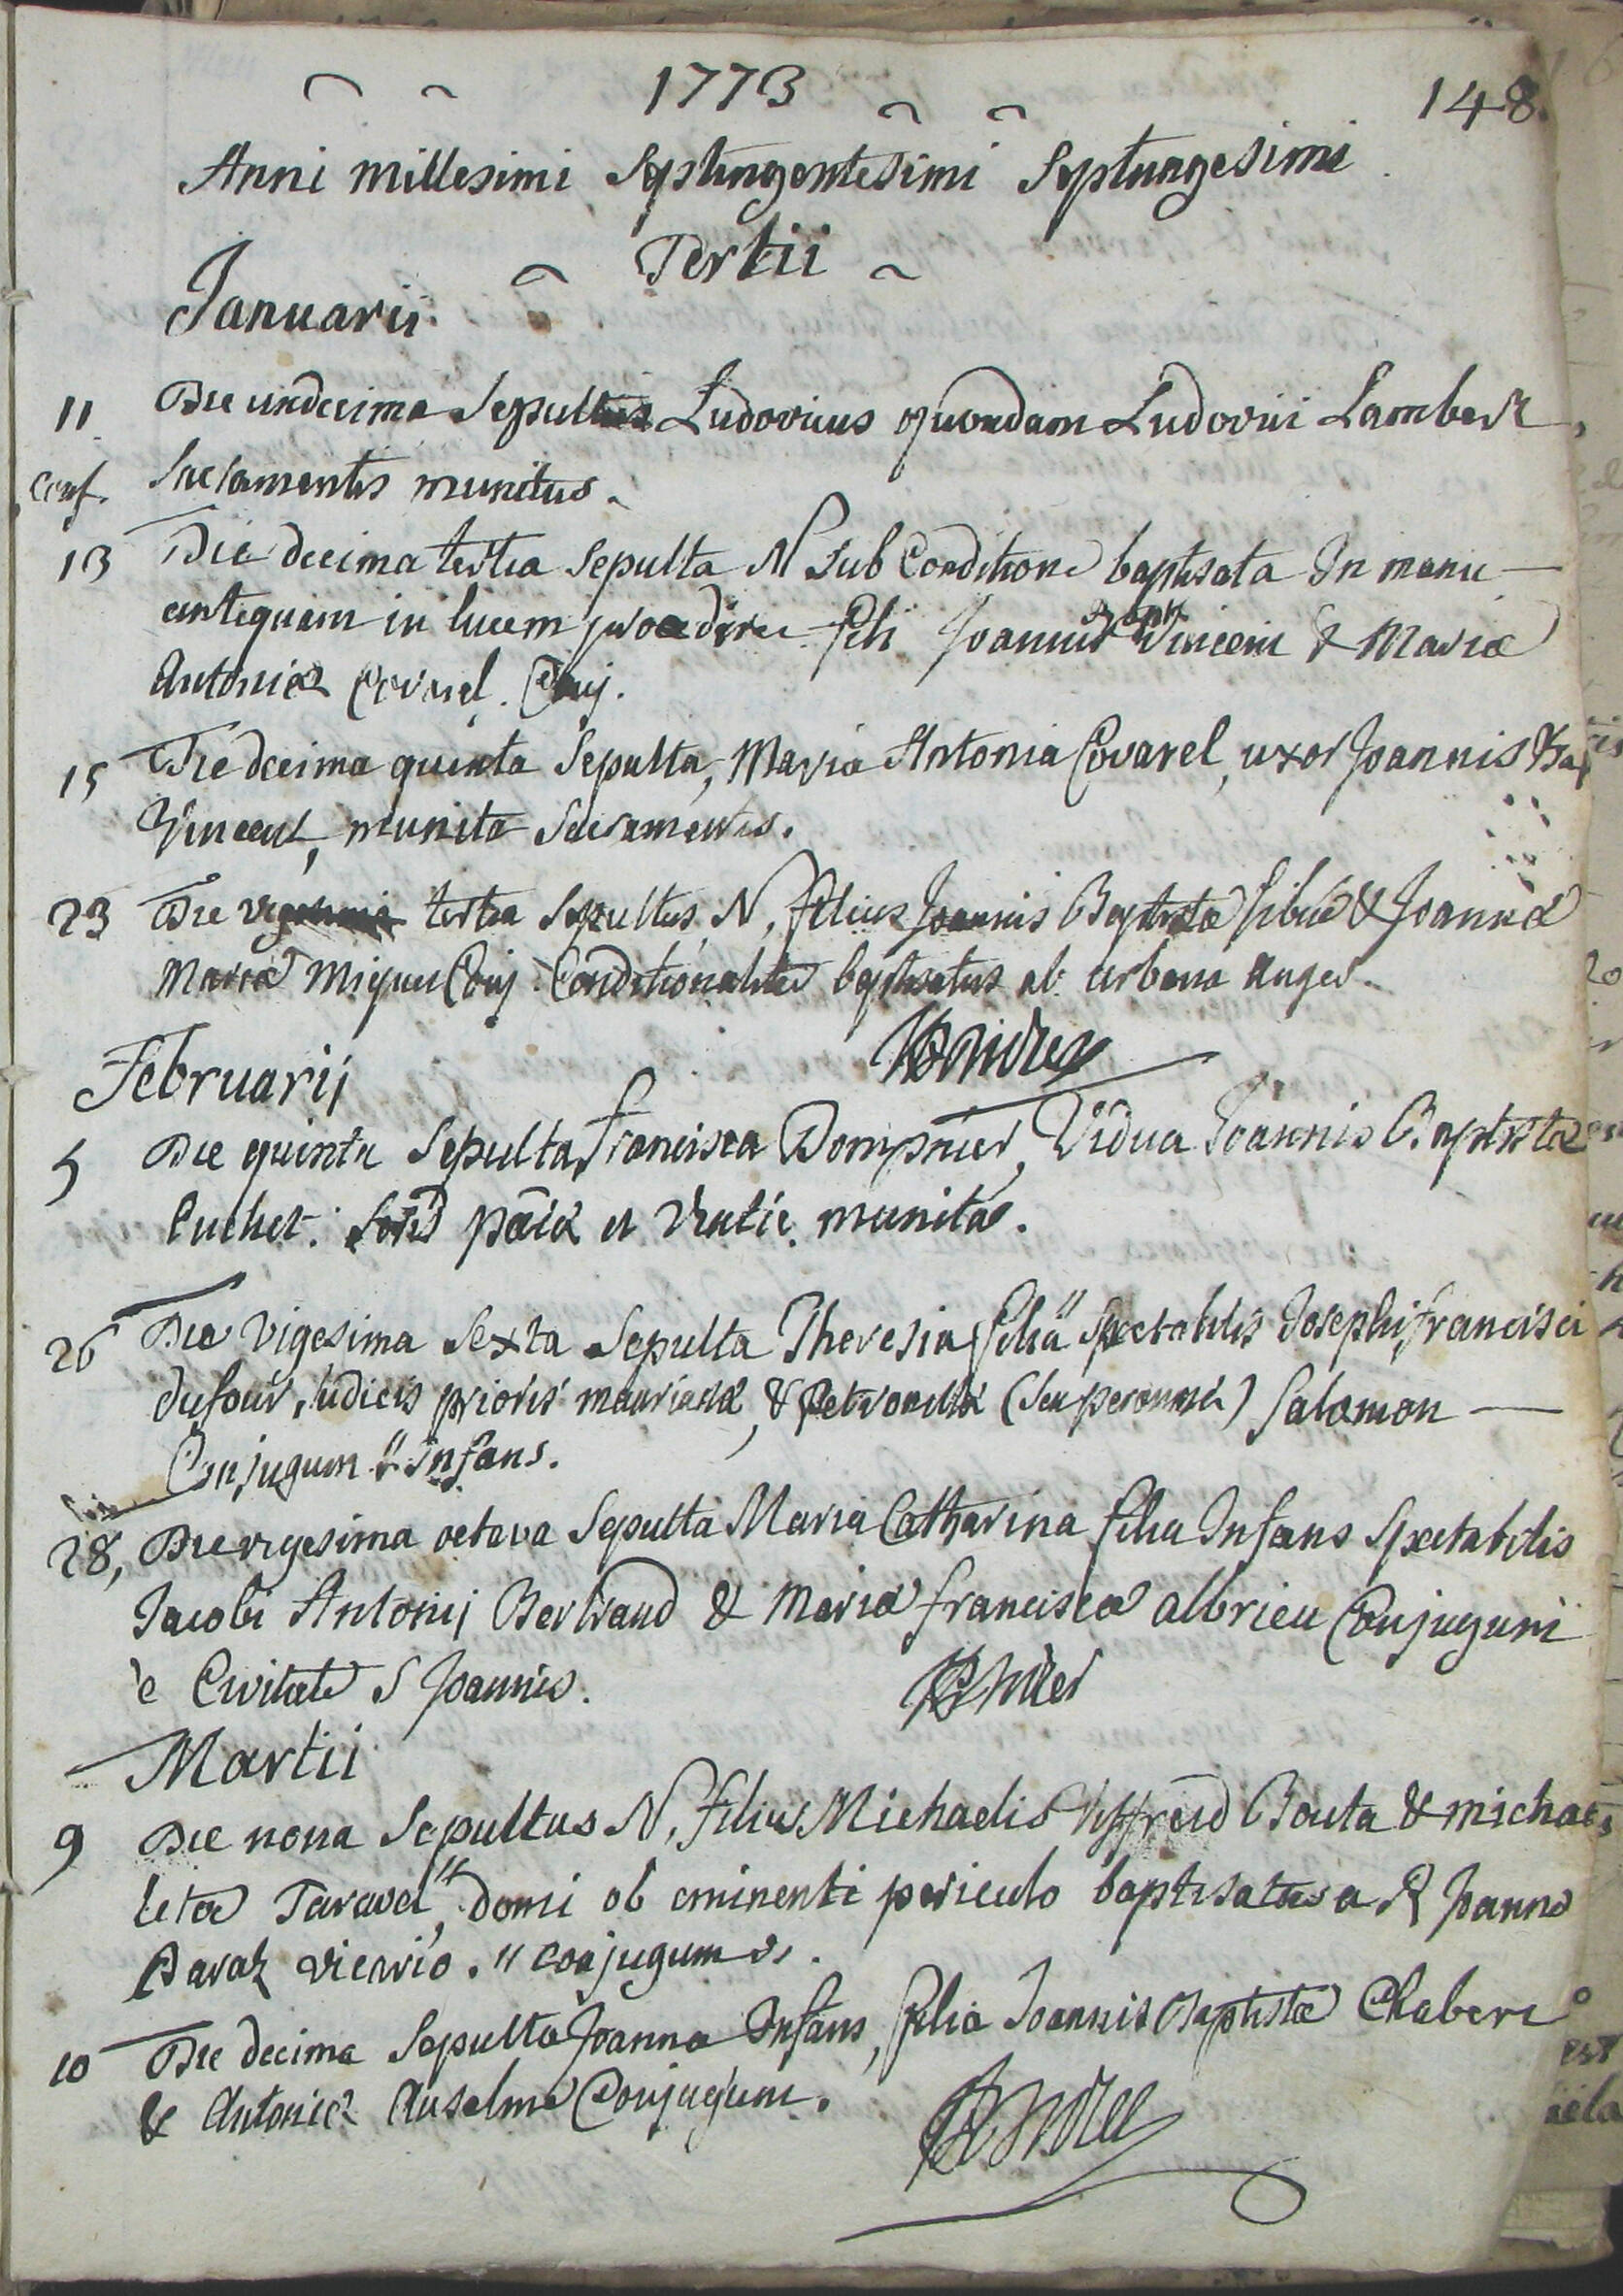 1773
148.
Anni millesimi Septingentesimi Septuagesimi
Tertii
Januarii
11 Die undecima Sepultus Ludovicus quondam Ludovici Lambert
conf. Sacramentis munitus.
13 Die decima tertia Sepulta N sub Conditione baptisata In manu
antequam in lucem filii Joannis Bapt Vincent & Mariæ
Antoniæ Covarel. Conj.
15 Die decima quinta Sepulta, Maria Antonia Covarel, uxor Joannis Bap
Vincent, munita Sacramentis.
23 Die vigesima tertia Sepultus N, filius Joannis Baptistæ & Joannæ
Mariæ Conj. Conditionaliter baptisatus ab urbano Anger.
Februarij
5 Die quinta Sepulta francisca Dompnier, Vidua Joannis Baptistæ
Cuchet. pœiæ et munita.
26 Die vigesima Sexta Sepulta Theresia filia" Spectabilis Josephi francisci
dufour, Judicis prioris maurianæ, & Petronillæ (seu peronnæ) Salomon
Conjugum " infans.
28, Die vigesima octava Sepulta Maria Catharina filia Infans Spectabilis
Jacobi Antonij Bertrand & Mariæ franciscæ albrieu Conjugum
è Civitate S Joannis.
Martii
9 Die nona Sepultus N, filius Michaelis Bouta & michae
letæ Taravel", domi ob eminenti periculo baptisatus a R Joanne
Baraz vicario. " conjugum
10 Die decima Sepulta Joanna Infans, filia Joannis Baptistæ Chabert
& Antoniæ Anselme Conjugum.